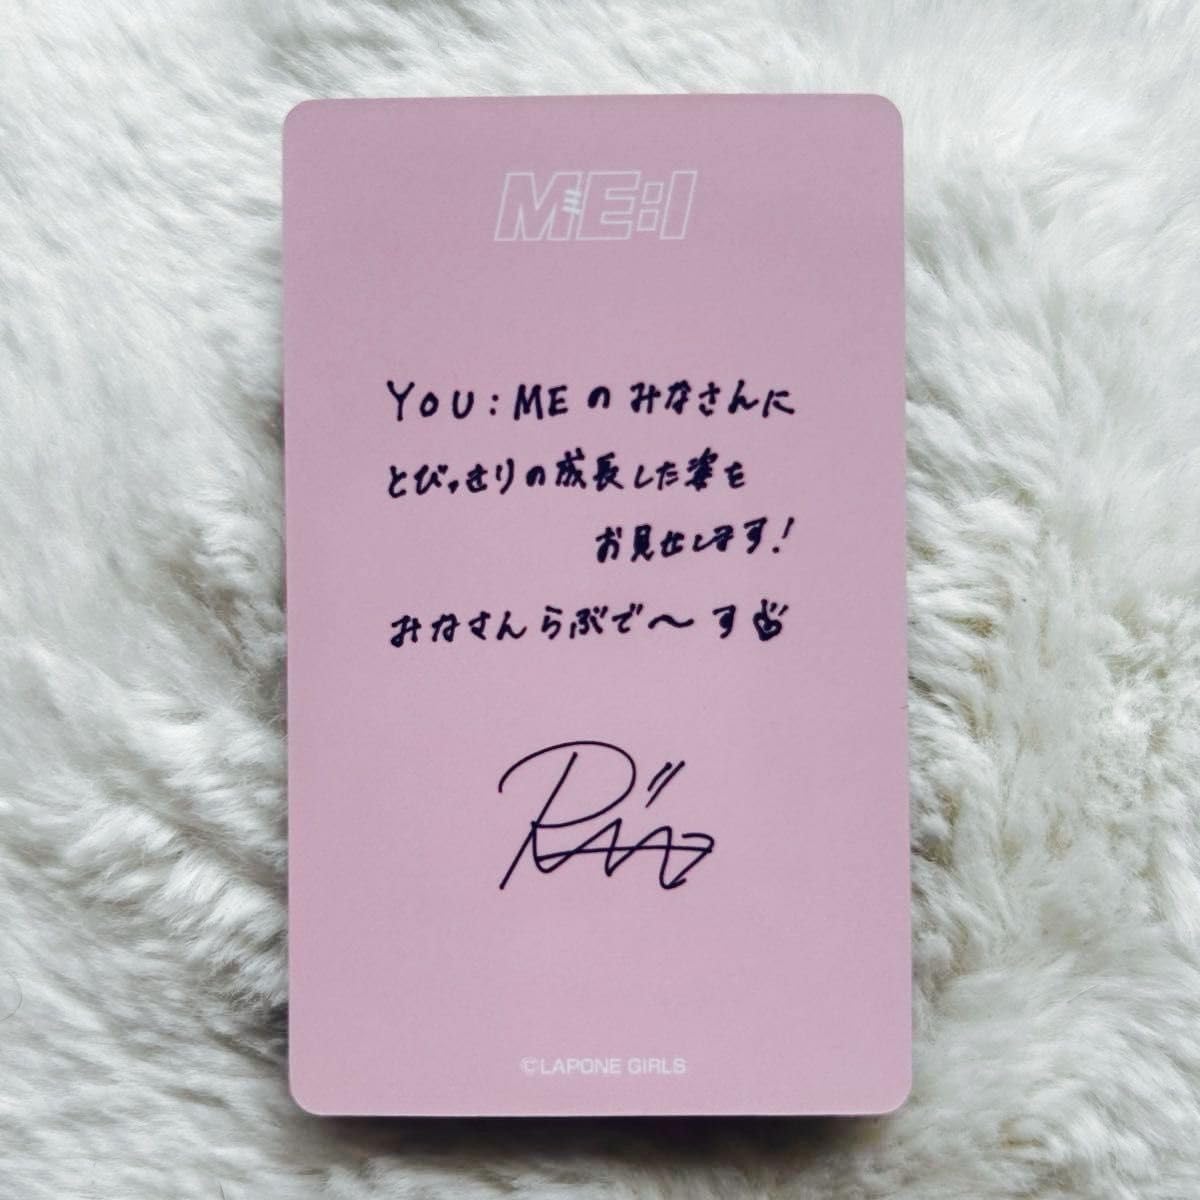 ME:I
YOU:MEのみなさんに
とびっきりの成長した姿を
お見せします!
みなさんらぶで〜す
Rin
©LAPONE GIRLS